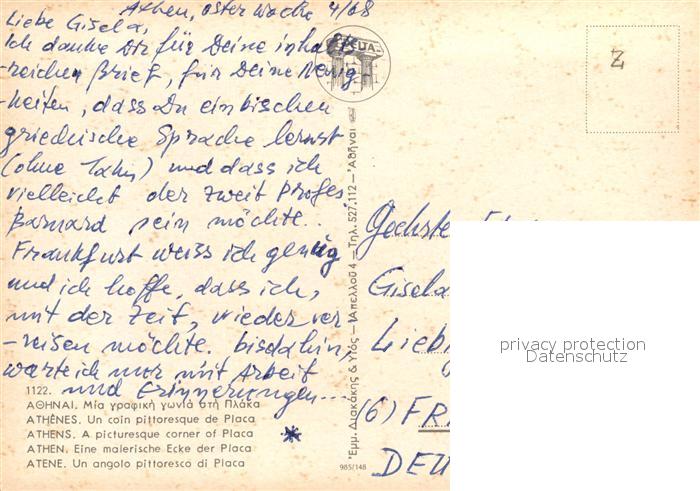 Athen, Osterwoche 4/68
Liebe Gisela,
Ich danke Dir für Deine inhalts
-reichen Brief, für Deine Neuig-
-keiten, dass Du ein bischen
griechische Sprache lernst
(ohne ) und dass ich
vielleicht der zweit Profes
Barnard sein möchte..
Frankfurt weiss ich genüg
und ich hoffe, dass ich,
mit der Zeit, wieder ver
-reisen möchte. bisdahin,
warte ich nur mit Arbeit
und Erinnerungen...
1122.
ΑΘΗΝΑΙ. Μία γραφική γωνιά στή Πλάκα
ATHÈNES. Un coin pittoresque de Placa
ATHENS. A picturesque corner of Placa
ATHEN. Eine malerische Ecke der Placa
ATENE. Un angolo pittoresco di Placa
Ἐμμ. Διακάκης & Υἱός – Ἀπελλοῦ 4 – Τηλ. 527.112 – Ἀθῆναι
985/148
Z
Gisela
(6) FR
DEU
privacy protection
Datenschutz